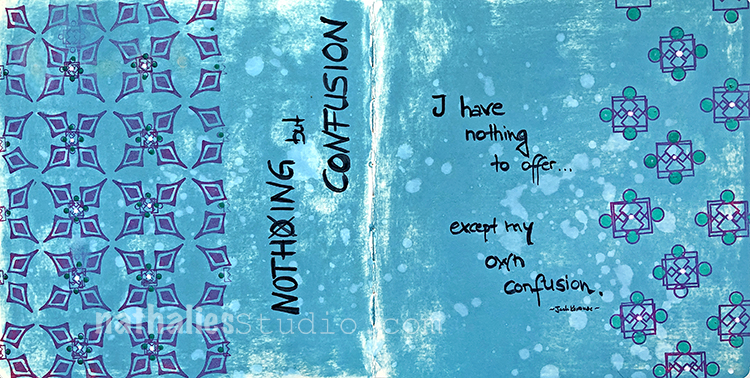 NOTHING but
CONFUSION
I have
nothing
to offer...
except my
own
confusion.
nathaliesStudio.com